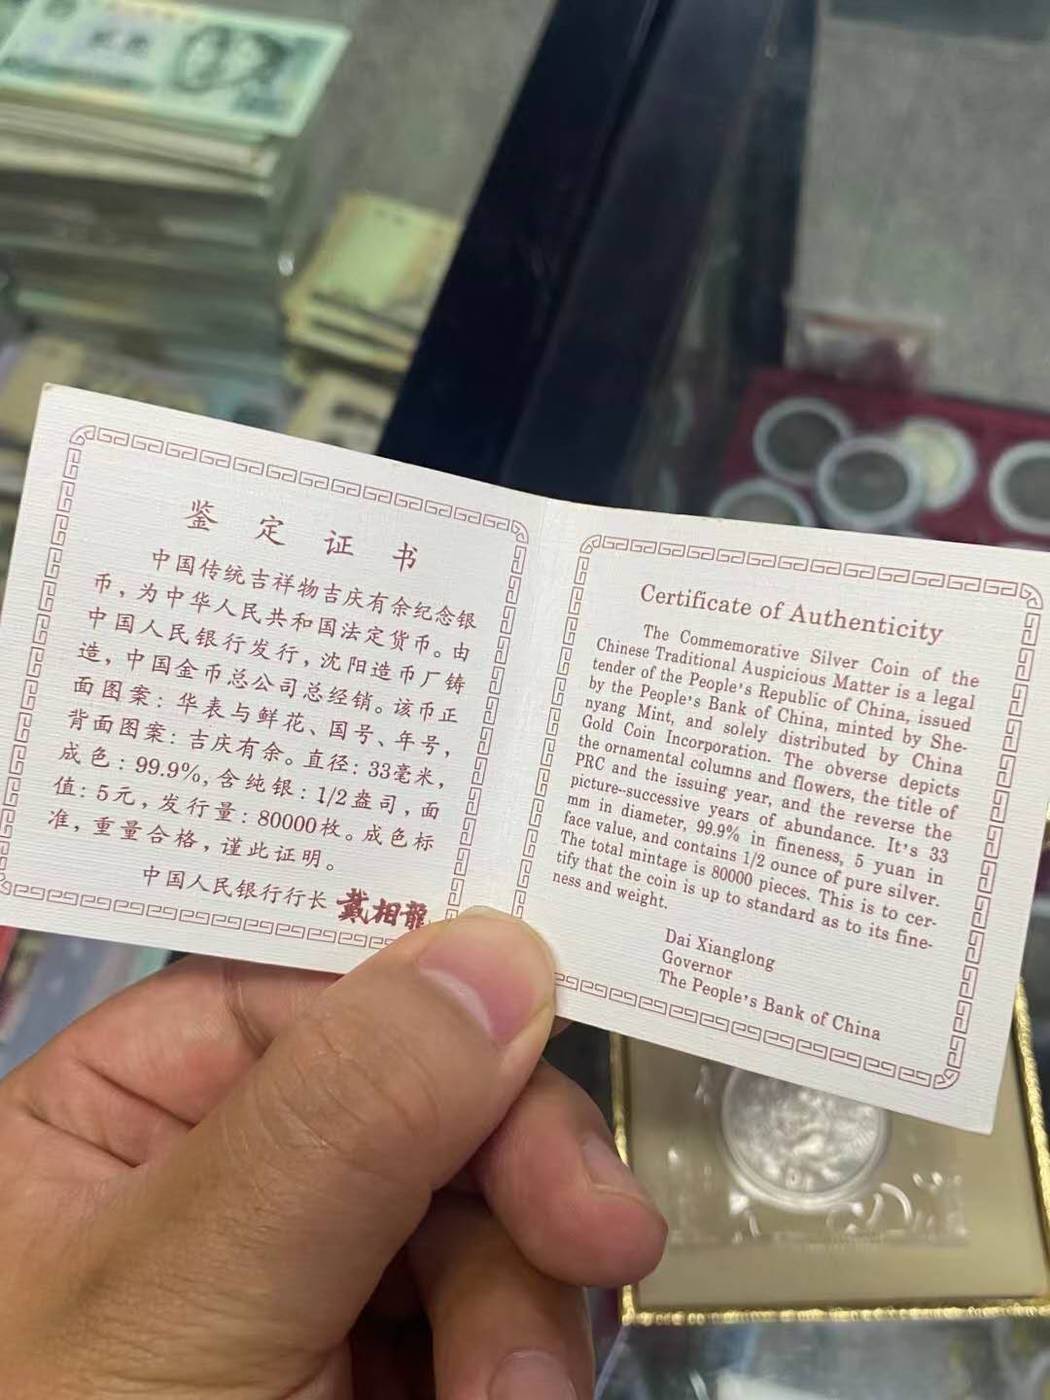 鉴定证书
中国传统吉祥物吉庆有余纪念银
币，为中华人民共和国法定货币。由
中国人民银行发行，沈阳造币厂铸
造，中国金币总公司总经销。该币正
面图案：华表与鲜花、国号、年号，
背面图案：吉庆有余。直径：33毫米，
成色：99.9%，含纯银：1/2盎司，面
值：5元，发行量：80000枚。成色标
准，重量合格，谨此证明。
中国人民银行行长 戴相龍
Certificate of Authenticity
The Commemorative Silver Coin of the
Chinese Traditional Auspicious Matter is a legal
tender of the People's Republic of China, issued
by the People's Bank of China, minted by She-
nyang Mint, and solely distributed by China
Gold Coin Incorporation. The obverse depicts
the ornamental columns and flowers, the title of
PRC and the issuing year, and the reverse the
picture--successive years of abundance. It's 33
mm in diameter, 99.9% in fineness, 5 yuan in
face value, and contains 1/2 ounce of pure silver.
The total mintage is 80000 pieces. This is to cer-
tify that the coin is up to standard as to its fine-
ness and weight.
Dai Xianglong
Governor
The People's Bank of China